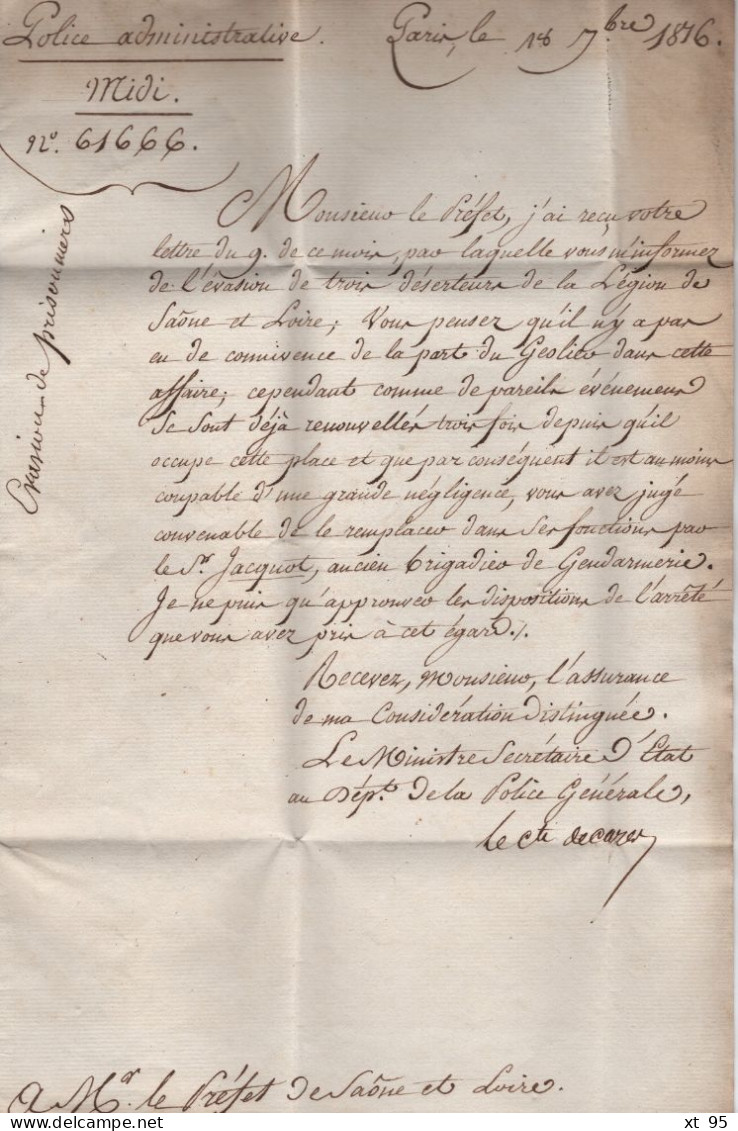 Police administrative.
Paris, le 18 7bre 1816.
Midi.
No. 61666.
Evasion de prisonniers
Monsieur le Préfet, j'ai reçu votre
lettre du 9. de ce mois, par laquelle vous m'informez
de l'évasion de trois déserteurs de la Légion de
Saône et Loire; Vous pensez qu'il n'y a pas
eu de connivence de la part du Geolier dans cette
affaire; cependant comme de pareils événemens
se sont déjà renouvellés trois fois depuis qu'il
occupe cette place et que par conséquent il est au moins
coupable d'une grande négligence, vous avez jugé
convenable de le remplacer dans ses fonctions par
le Sr. Jacquot, ancien brigadier de Gendarmerie.
Je ne puis qu'approuver les dispositions de l'arrêté
que vous avez pris à cet égard./.
Recevez, Monsieur, l'assurance
de ma Considération distinguée.
Le Ministre Secrétaire d'Etat
au Dépt. de la Police Générale,
le cte decazes
A Mr. le Préfet de Saône et Loire.
xt 95